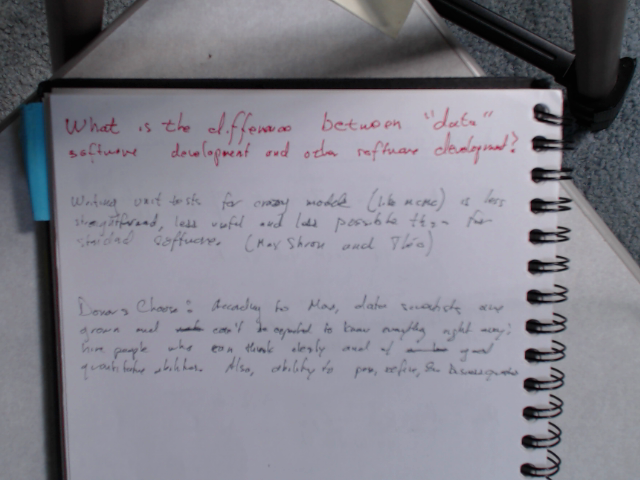 What is the difference between "data"
software development and other software development?
Writing unit tests for crazy models (like MCMC) is less
straightforward, less useful and less possible than for
standard software. (Max Shron and Théo)
Donors Choose: According to Max, data scientists are
grown and can't be expected to know everything right away:
hire people who can think clearly and of good
quantitative abilities. Also, ability to pose, refine,